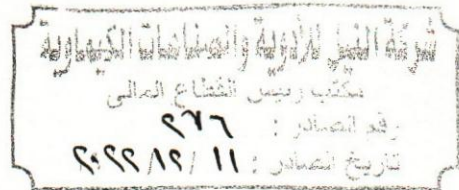 شركة النيل للأدوية والصناعات الكيماوية
مكتب رئيس القطاع المالى
رقم الصادر : ٢٧٦
تاريخ الصادر : ١١ / ١٢ / ٢٠٢٢